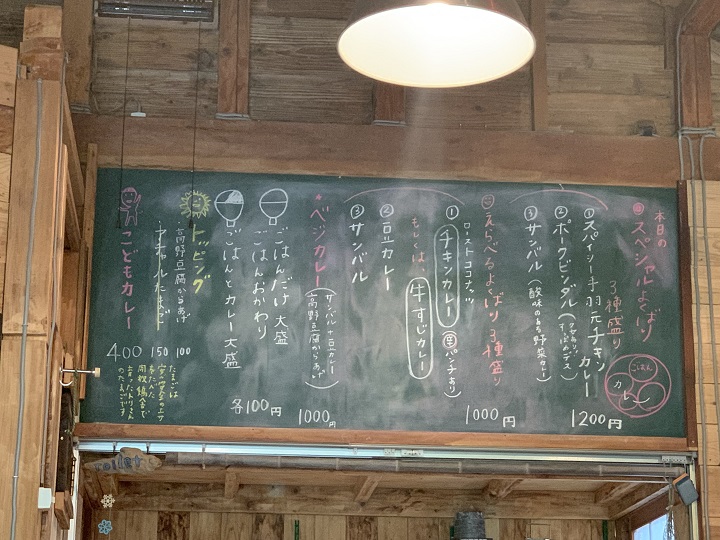 本日の
スペシャルよくばり
3種盛り
①スパイシー手羽元チキンカレー
②ポークビンダル
③サンバル(酸味のある野菜カレー)
ごはん
カレー
1200円
えらべるよくばり3種盛り
ローストココナッツ
①チキンカレー
パンチあり
もしくは、
牛すじカレー
②豆カレー
③サンバル
1000円
ベジカレー
サンバル+豆カレー
高野豆腐からあげ
1000円
ごはんだけ 大盛
ごはんおかわり
ごはんとカレー 大盛
各100円
トッピング
・高野豆腐からあげ
100
・アチャルたまご
150
こどもカレー
400